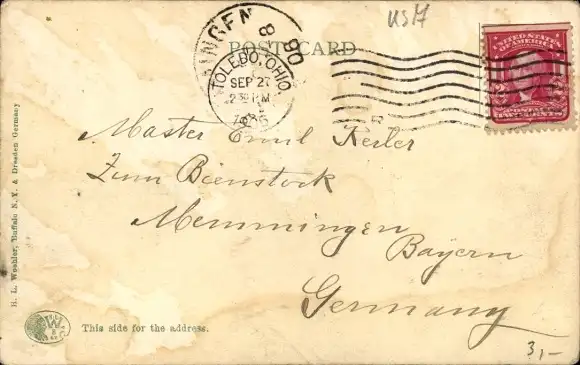 USA
POST CARD
INGEN 8 90
TOLEDO, OHIO
SEP 27
230 PM
UNITED STATES
OF AMERICA
POSTAGE
TWO CENTS
Master Emil Keiler
Zum Bienstock
Memmingen
Bayern
Germany
H. L. Woehler, Buffalo N. Y. & Dresden Germany
This side for the address.
3,-